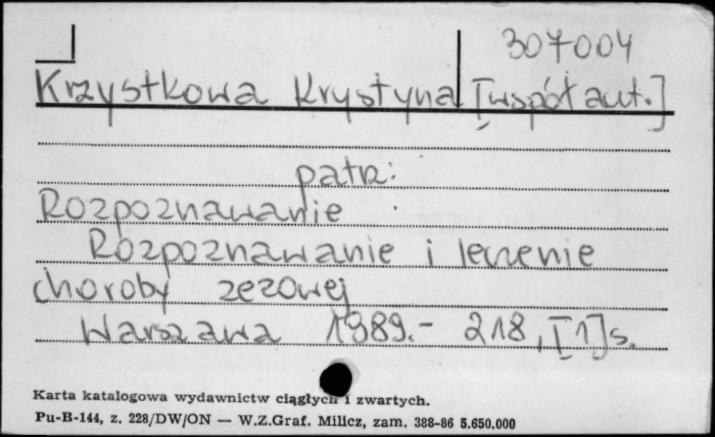 307004
Krzystkowa Krystyna [współaut.]
patrz:
Rozpoznawanie
Rozpoznawanie i leczenie
choroby zezowej
Warszawa 1989.- 218, [1] s.
Karta katalogowa wydawnictw ciągłych i zwartych.
Pu-B-144, z. 228/DW/ON — W.Z.Graf. Milicz, zam. 388-86 5.650.000